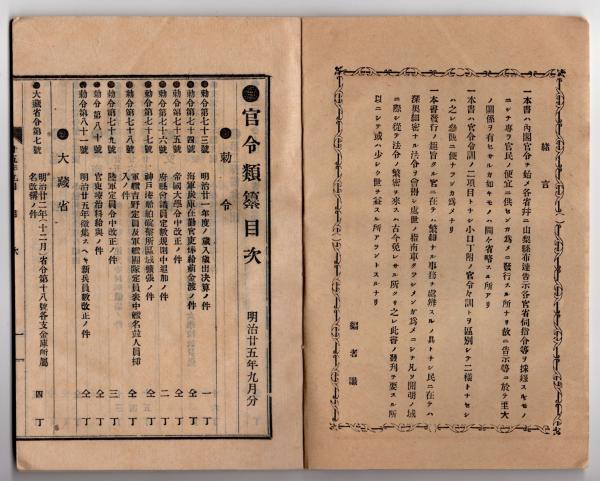 緒言
一本書ハ內閣官令ヲ始メ各省幷ニ山梨縣布達告示各官省伺指令等ヲ採錄スルモノ
ニシテ專ラ官民ノ便宜ニ供センカ爲メニ發行スル所ナリ故ニ告示等ニ於テ重大
ノ關係ヲ有セサルカ如キモノハ間々省略スル所アリ
一本書ハ官令令訓ノ二項目トナシ小口丁附ノ官令々訓トヲ區別シテ二樣トナセシ
ハ之レ參觀ニ便ナランカ爲メナリ
一本書發行ノ趣旨タル官ニ在テハ繁縟ナル事務ヲ處辨スルノ具トナシ民ニ在テハ
深奧細密ナル法令ヲ會得シ處世ノ指南車タラシメンガ爲メニシテ凡ソ開明ノ域
ニ際シ從テ法令ノ繁密ヲ來スハ古今免レサル所タリ之レ此書ノ發刊ヲ要スル所
以ニシテ或ハ少シク世ヲ益スル所アラントスルナリ
編者識
官令類纂目次
明治廿五年九月分
勅令
勅令第七十三號 明治廿一年度ノ歲入歲出決算ノ件 一丁
勅令第七十四號 仝丁
勅令第七十五號 帝國大學令中改正ノ件 仝丁
勅令第七十六號 府縣會議員定數規則中追加ノ件 二丁
勅令第七十七號 神戶港船舶碇繫所區域擴張ノ件 仝丁
勅令第七十八號 軍艦吉野定員及軍艦團隊定員表中艦名並人員揷入ノ件 仝丁
勅令第七十九號 陸軍定員令中改正ノ件 三丁
勅令第八十號 仝丁
勅令第八十一號 明治廿五年徵集スヘキ新兵員數改正ノ件 仝丁
大藏省
大藏省令第七號 明治廿二年十二月省令第十八號各支金庫所屬名改稱ノ件 四丁